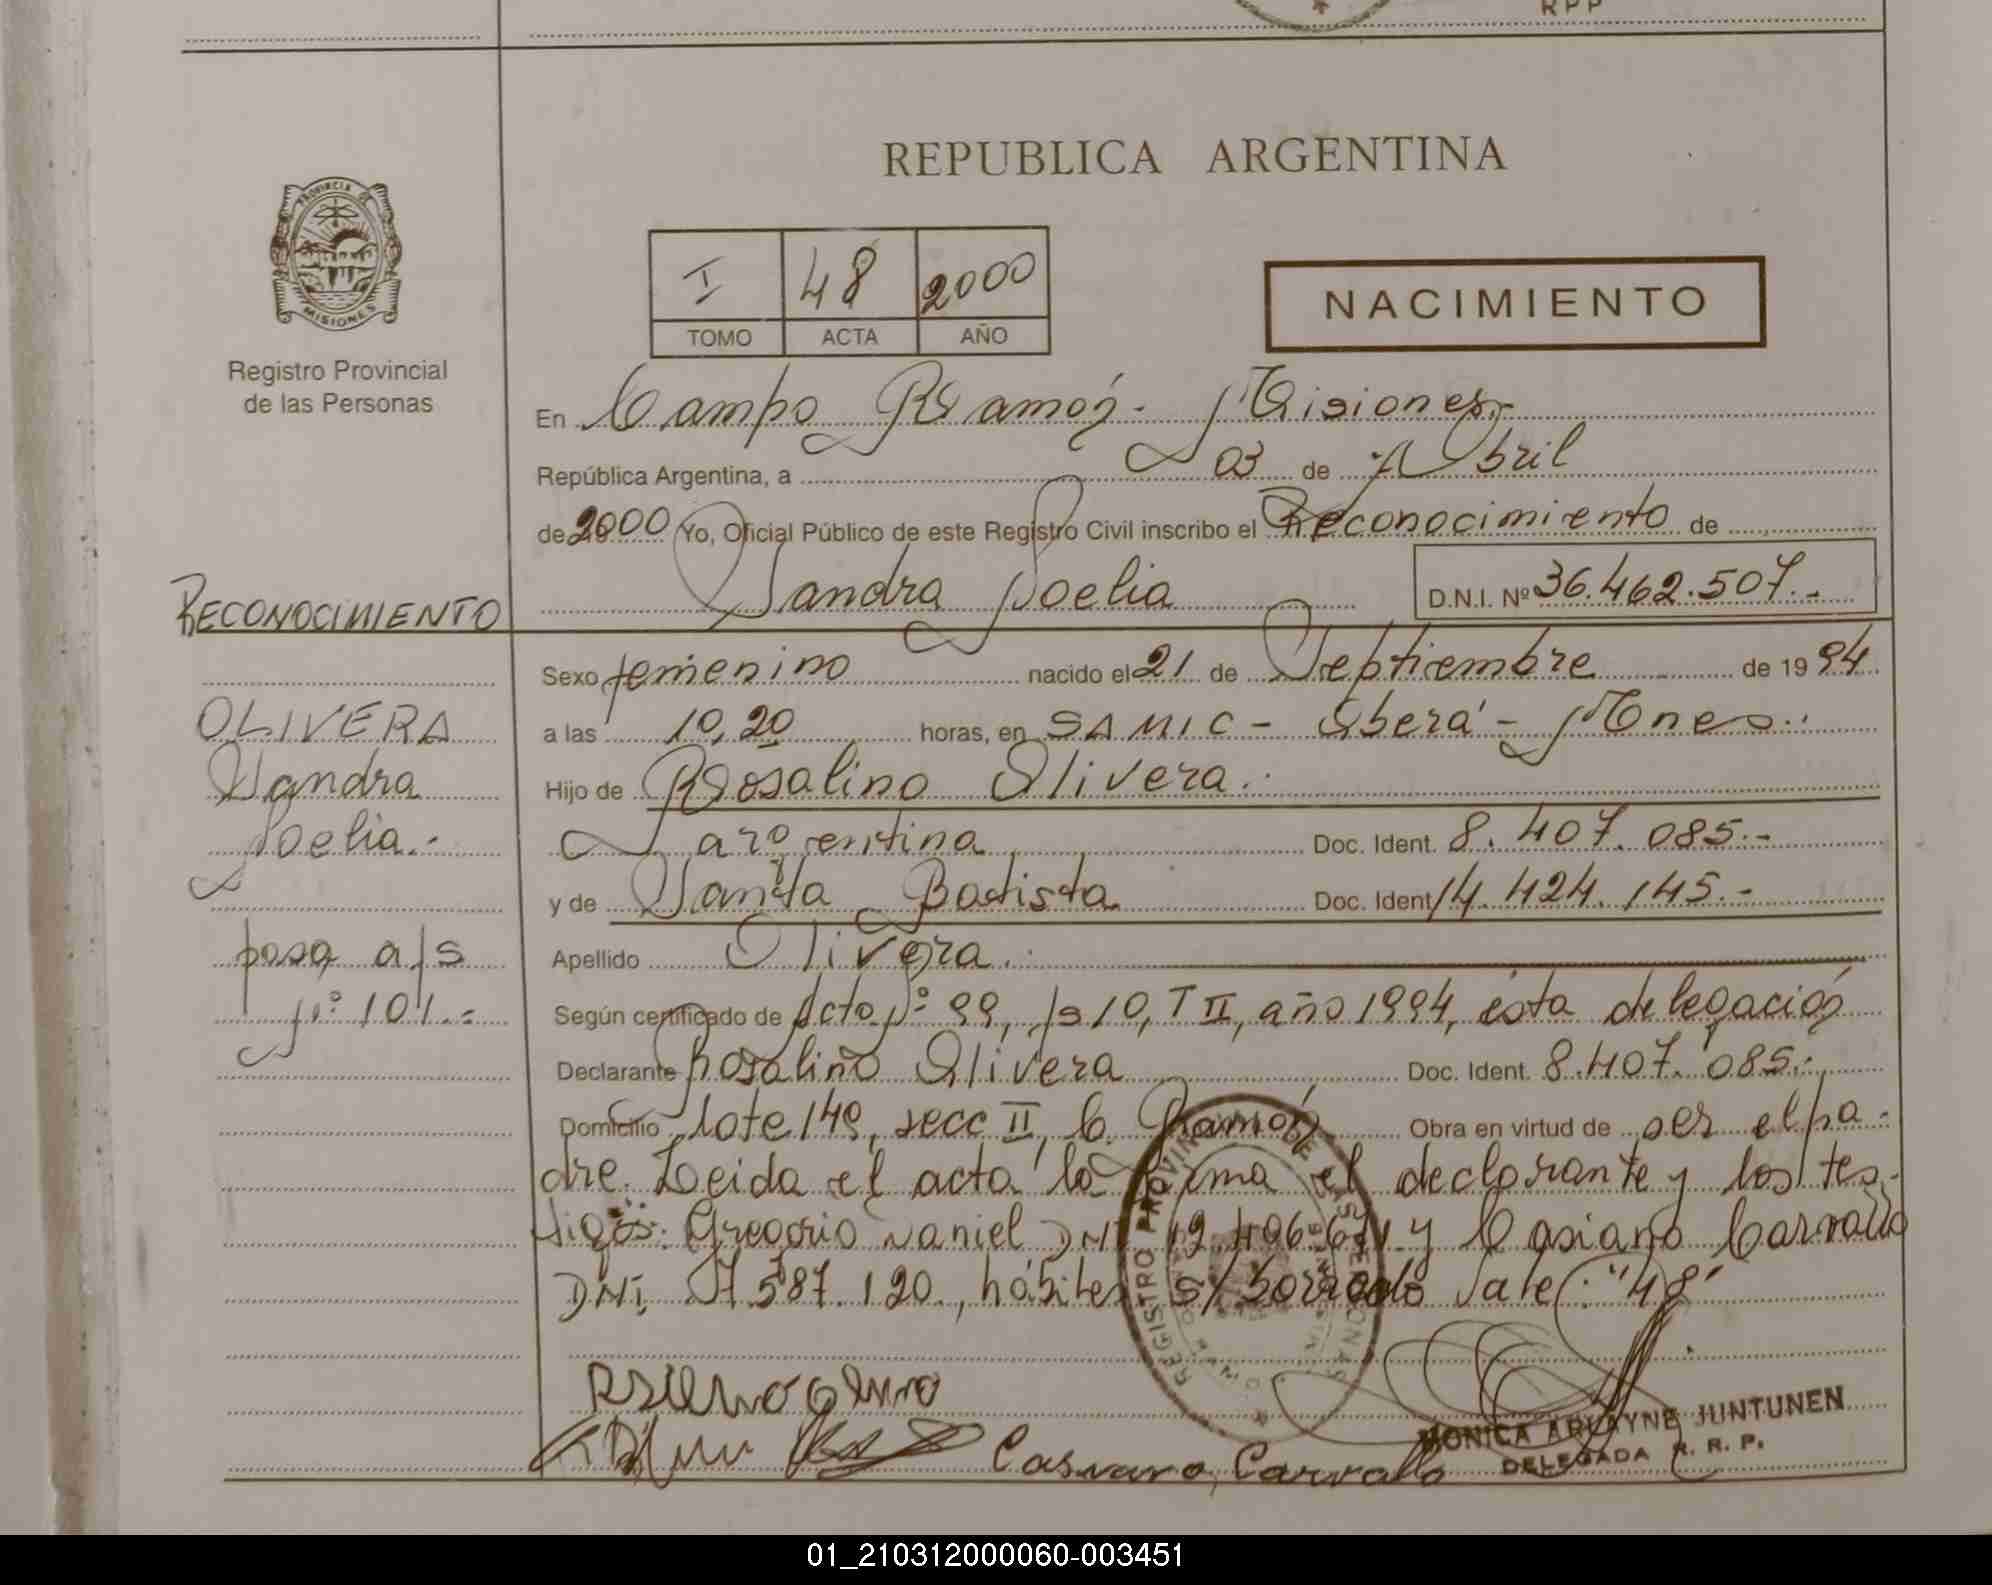 RPP
REPUBLICA ARGENTINA
PROVINCIA DE
MISIONES
I 48 2000
TOMO ACTA AÑO
NACIMIENTO
Registro Provincial
de las Personas
En Campo Ramón - Misiones,-
República Argentina, a 03 de Abril
de 2000 Yo, Oficial Público de este Registro Civil inscribo el Reconocimiento de
Sandra Noelia D.N.I. Nº 36.462.507.-
RECONOCIMIENTO
Sexo femenino nacido el 21 de Septiembre de 19 94
OLIVERA
a las 10,20 horas, en SAMIC - Oberá - Mnes.
Sandra
Hijo de Rosalino Olivera.
Noelia.-
argentina Doc. Ident. 8.407.085.-
y de Santa Batista Doc. Ident 14.424.145.-
pasa a fs
Apellido Olivera.
Nº 101.-
Según certificado de Acta Nº 99, fs 10, T II, año 1994, ésta delegación
Declarante Rosalino Olivera Doc. Ident. 8.407.085.
Domicilio lote 149, secc II, C. Ramón Obra en virtud de ser el pa-
dre. Leida el acta la firma el declarante y los tes-
tigos: Gregorio Daniel DNI 12.496.671 y Casiano Carvallo
DNI, 7.587.120., hábiles S/borrado Vale: "48"
REGISTRO PROVINCIAL DE LAS PERSONAS
Casiano, Carvallo
MONICA ARLAYNE JUNTUNEN
DELEGADA R. R. P.
01_210312000060-003451